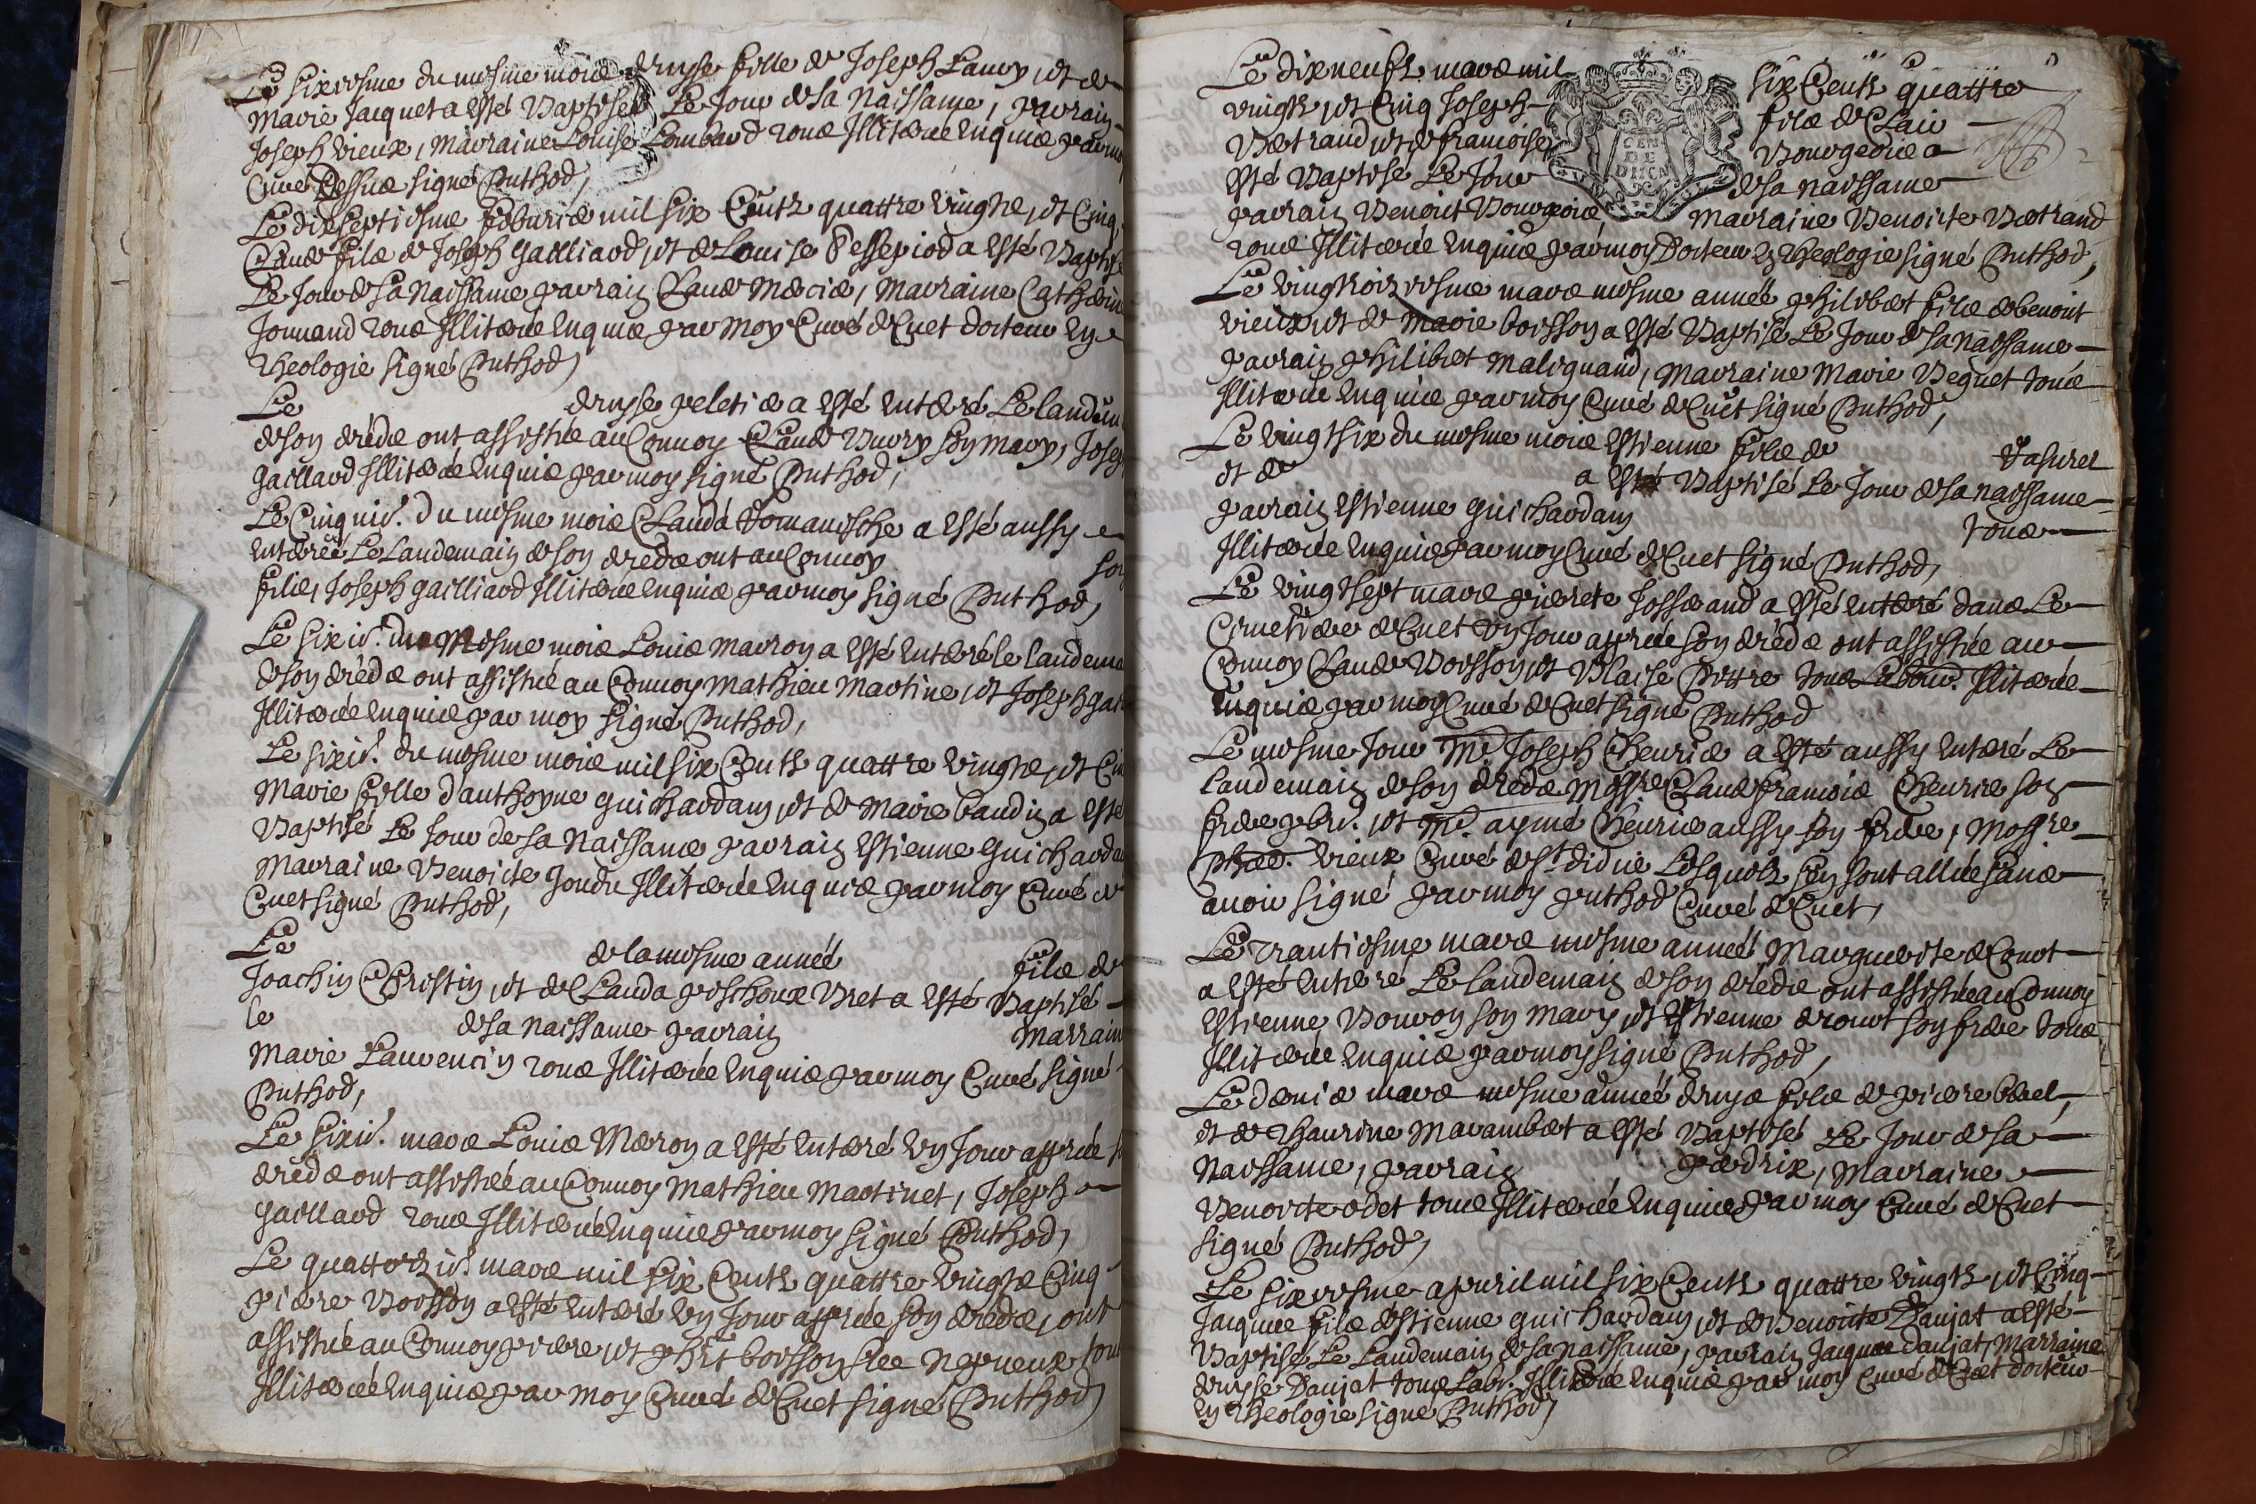 Le sixiesme du mesme mois denyse fille de Joseph Laury et de
Marie Jacquet a esté Baptisée Le Jour de sa Naissance, parrain
Joseph vieux, Marraine Louise Lombard tous Illiterés Enquis par moy
Curé Dessus signé Puthod,
Le dixseptiesme febvrier mil six Cents quattre vingts, et Cinq,
Claude fils de Joseph Gailliard, et de Louise a esté Baptisé
Le Jour de sa Naissance parrain Claude Mercier, Marraine Catherine
Jonnand tous Illiterés Enquis par Moy Curé de Cuet docteur En
Theologie signé Puthod,
Le denyse peletier a esté Enterré Le landemain
de son decedz ont assistés au Convoy Claude Buvry son Mary, Joseph
Gaillard Illiterés Enquis par moy signé Puthod,
Le Cinquie. du mesme mois Clauda a esté aussy
Enterrée Le Landemain de son decedz ont au Convoy son
fils, Joseph Gailliard Illiterés Enquis par moy signé Puthod,
Le sixie. du Mesme mois Louis Marron a esté Enterré le landemain
de son decedz ont assistés au Convoy Mathieu Martine, et Joseph
Illiterés Enquis par moy signé Puthod,
Le sixie. du mesme mois mil six Cents quattre vingts, et Cinq
Marie fille d'anthoyne guichardan, et de Marie baudin a esté
Baptisé Le Jour de sa Naissance parrain Estienne Guichardan
Marraine Benoite Joudu Illiterés Enquis par moy Curé de
Cuet signé Puthod,
Le de la mesme année fils de
Joachin Christin, et de Clauda a esté Baptisé
le de sa naissance parrain Marraine
Marie Laurencin tous Illiterés Enquis par moy Curé signé
Puthod,
Le sixie. mars Louis Merron a esté Enterré un Jour apprés
decedz ont assistés au Convoy Mathieu Martinet, Joseph
Gaillard tous Illiterés Enquis par moy signé Puthod,
Le quattorzie. mars mil six Cents quattre vingts Cinq
pierre Boisson a esté Enterré un Jour apprés son decedz, ont
assistés au Convoy pierre, et phbt boisson ses Nepveux tous
Illiterés Enquis par moy Curé de Cuet signé Puthod,
Le dixneufz mars mil six Cents quattre
vingts et Cinq Joseph fils de Clair
Bertrand, et de francoise Bourgeois a
esté Baptisé Le Jour de sa naissance
parrain Benoit Bourgeois Marraine Benoite Bertrand
tous Illiterés Enquis par moy Docteur En Theologie signé Puthod,
Le vingtroiziesme mars mesme année philibert fils de benoit
vieux, et de Marie boisson a esté Baptisé Le Jour de sa naissance
parrain philibert Malignand, Marraine Marie Beguet tous
Illiterés Enquis par moy Curé de Cuet signé Puthod,
Le vingtsix du mesme mois Estienne fils de
et de a esté Baptisé Le Jour de sa naissance
parrain Estienne guichardan tous
Illiterés Enquis par moy Curé de Cuet signé Puthod,
Le vingtsept mars pierrete Josserand a esté Enterré dans Le
Cimetiere de Cuet un Jour apprés son decedz ont assistés au
Convoy Claude Boisson, et Blaise Pittre tous Labour. Illiterés
Enquis par moy Curé de Cuet signé Puthod
Le mesme Jour Mr. Joseph Cheurier a esté aussy Enterré Le
Landemain de son decedz Messre Claude francois Cheurier son
frere pbr. et Mr. aymé Cheurier aussy son frere, Messre
vieux Curé de St didier Lesquels s'en sont allés sans
avoir signé par moy puthod Curé de Cuet,
Le Trantiesme mars mesme année Marguerite
a esté Enterré Le landemain de son decedz ont assistés au Convoy
Estienne Bouvoy son Mary, et Estienne son frere tous
Illiterés Enquis par moy signé Puthod,
Le dernier mars mesme année denys fils de pierre
et de Thaurine Marambet a esté Baptisé Le Jour de sa
Naissance, parrain perdrix, Marraine
Benoite odet tous Illiterés Enquis par moy Curé de Cuet
signé Puthod,
Le sixiesme apvril mil six Cents quattre vingts, et Cinq
Jacques fils d'Estienne guichardan, et de Benoite Danjat a esté
Baptisé Le Landemain de sa naissance, parrain Jacques danjat, Marraine
denyse Danjat tous Labr. Illiterés Enquis par moy Curé de Cuet docteur
En Theologie signé Puthod,